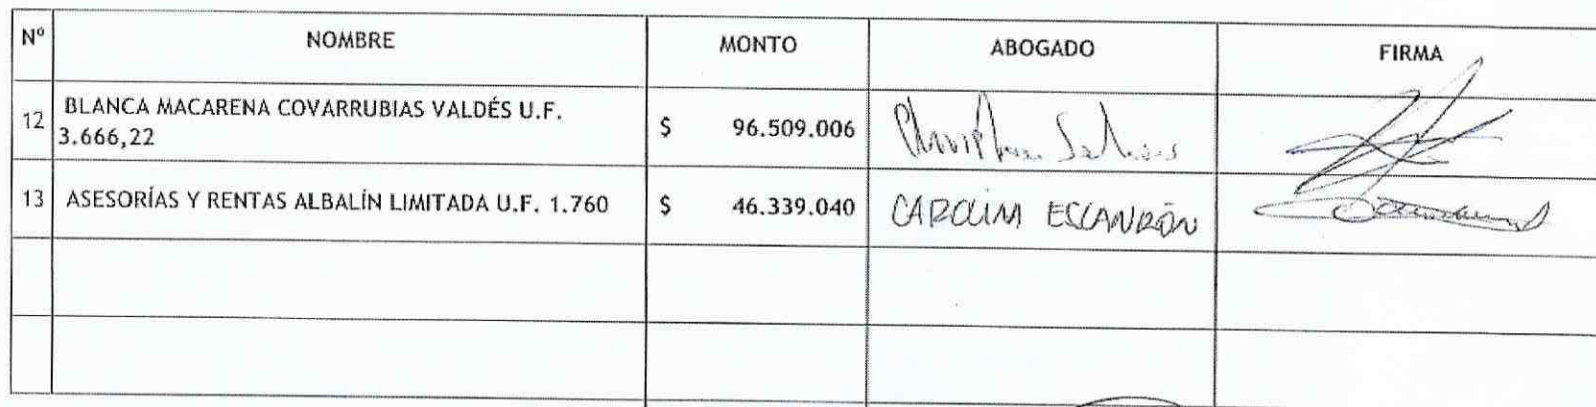 Nº NOMBRE MONTO ABOGADO FIRMA
12 BLANCA MACARENA COVARRUBIAS VALDÉS U.F. 3.666,22 $ 96.509.006
13 ASESORÍAS Y RENTAS ALBALÍN LIMITADA U.F. 1.760 $ 46.339.040 CAROLINA ESCANDÓN